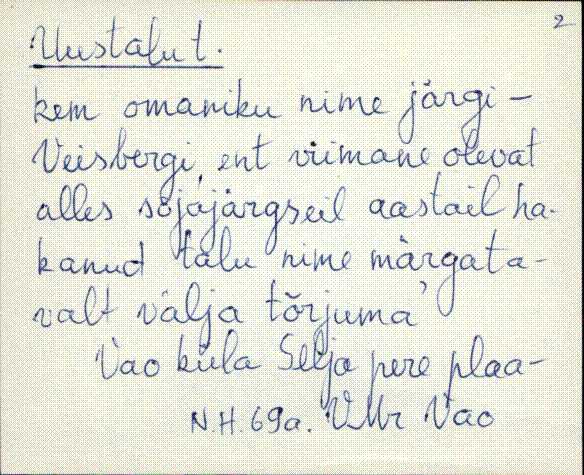 2
Uustalu t.
kem omaniku nime järgi -
Veisbergi, ent viimane olevat
alles sõjajärgseil aastail ha-
kanud talu nime märgata-
valt välja tõrjuma'
Vao küla Selja pere plaa-
N.H. 69a. VMr Vao